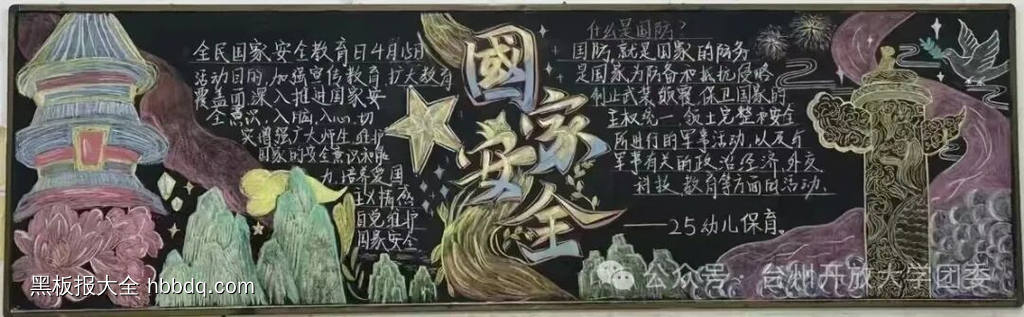 全民国家安全教育日4月15日
活动目的,加强宣传教育,扩大教育
覆盖面,深入推进国家安
全意识,入脑,入心,切
实增强广大师生,维护
国家的安全意识和能
力,培养爱国
主义情感
自觉维护
国家安全
國家安全
什么是国防?
国防,就是国家的防务
是国家为防备和抵抗侵略
制止武装颠覆,保卫国家的
主权统一、领土完整和安全
所进行的军事活动,以及与
军事有关的政治经济,外交
科技,教育等方面的活动。
——25幼儿保育。
黑板报大全 hbbdq.com
公众号·台州开放大学团委